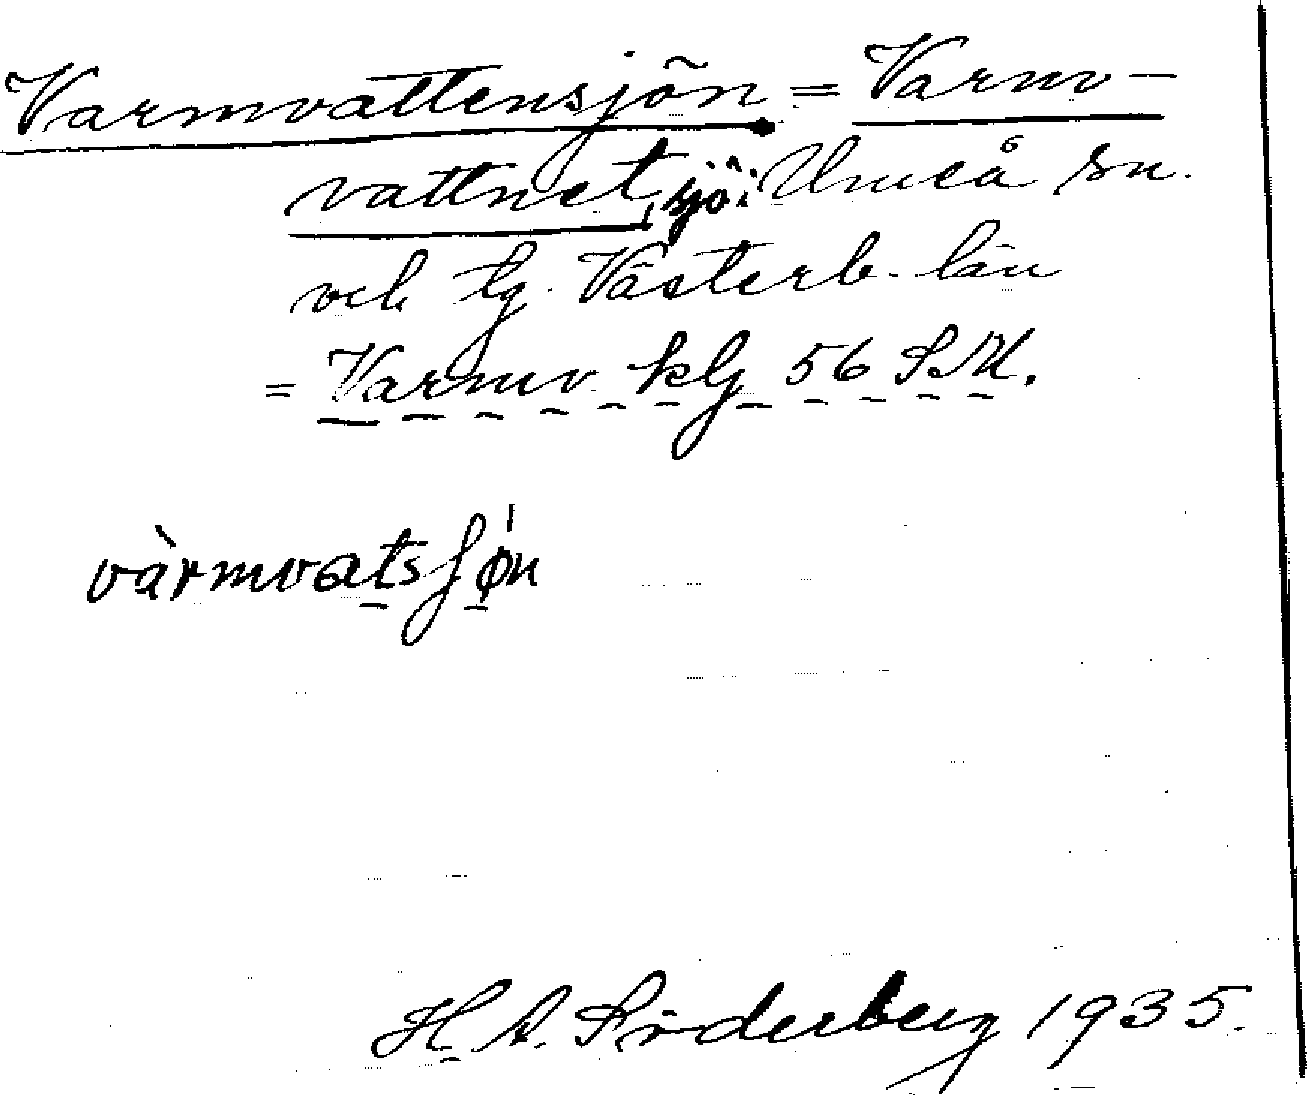 Varmvattensjön = Varmv-
vattnet, sjö: Umeå sn.
och tg. Västerb. län
= Varmv. klg 56 S.M.
vàrmvatsʃøn
H. A. Söderberg 1935.